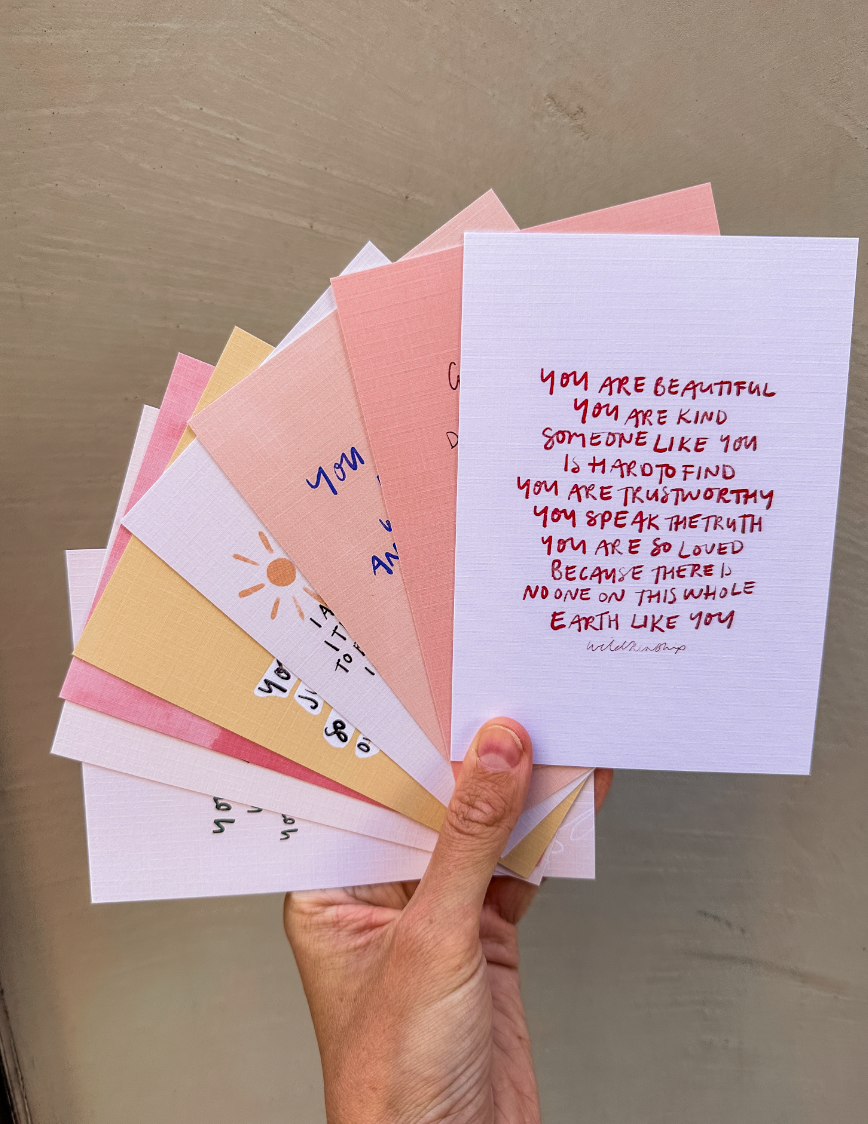 YOU ARE BEAUTIFUL
YOU ARE KIND
SOMEONE LIKE YOU
IS HARD TO FIND
YOU ARE TRUSTWORTHY
YOU SPEAK THE TRUTH
YOU ARE SO LOVED
BECAUSE THERE IS
NO ONE ON THIS WHOLE
EARTH LIKE YOU
wildkinship
you
so